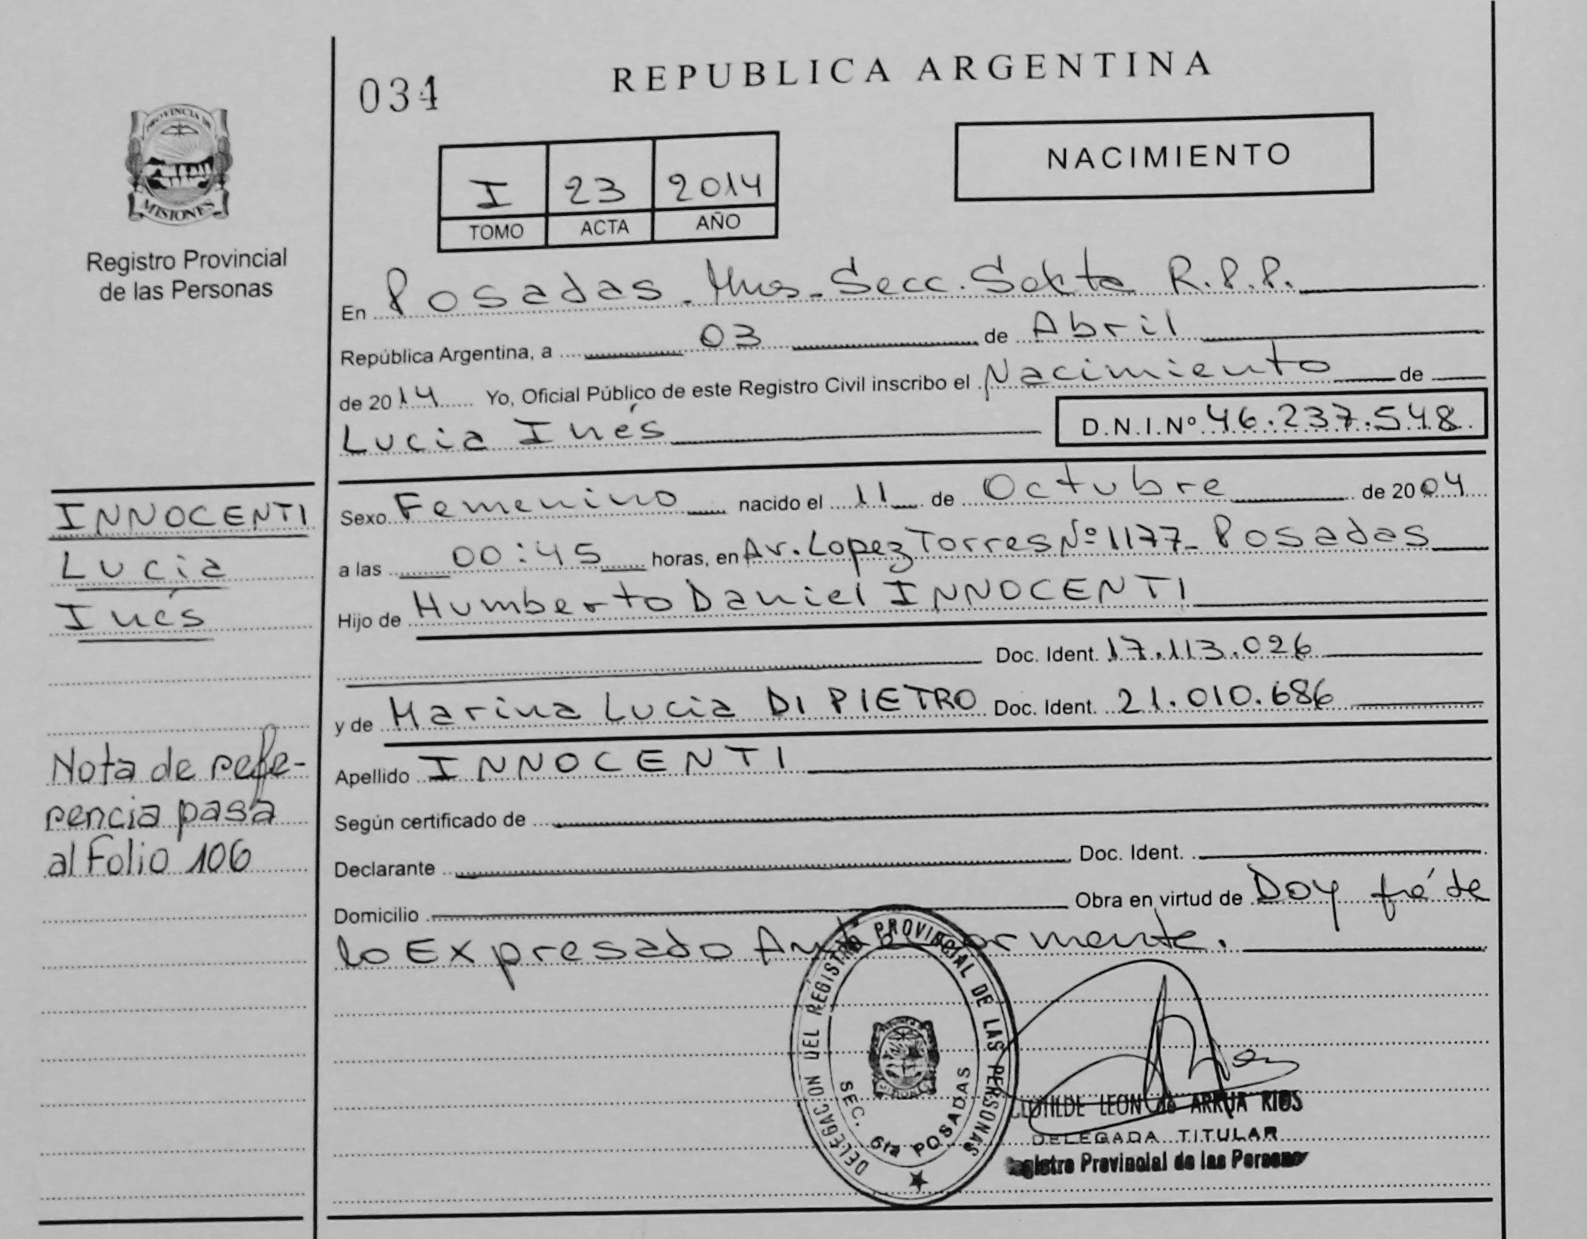 034
REPUBLICA ARGENTINA
PROVINCIA DE
MISIONES
Registro Provincial
de las Personas
I 23 2014
TOMO ACTA AÑO
NACIMIENTO
En Posadas - Mnes - Secc. Sexta R.P.P.
República Argentina, a 03 de Abril
de 2014 Yo, Oficial Público de este Registro Civil inscribo el Nacimiento de
Lucia Inés D.N.I.Nº 46.237.548
INNOCENTI
Lucia
Inés
Sexo Femenino nacido el 11 de Octubre de 2004
a las 00:45 horas, en Av. Lopez Torres Nº 1177 - Posadas
Hijo de Humberto Daniel INNOCENTI
Doc. Ident. 17.113.026
y de Marina Lucia DI PIETRO Doc. Ident. 21.010.686
Nota de refe-
rencia pasa
al Folio 106
Apellido INNOCENTI
Según certificado de
Declarante Doc. Ident.
Domicilio Obra en virtud de Doy fé de
lo Expresado Anteriormente.
DELEGACION DEL REGISTRO PROVINCIAL DE LAS PERSONAS
SEC. 6ta POSADAS
CLOTILDE LEON de ARRUA RIOS
DELEGADA TITULAR
Registro Provincial de las Personas